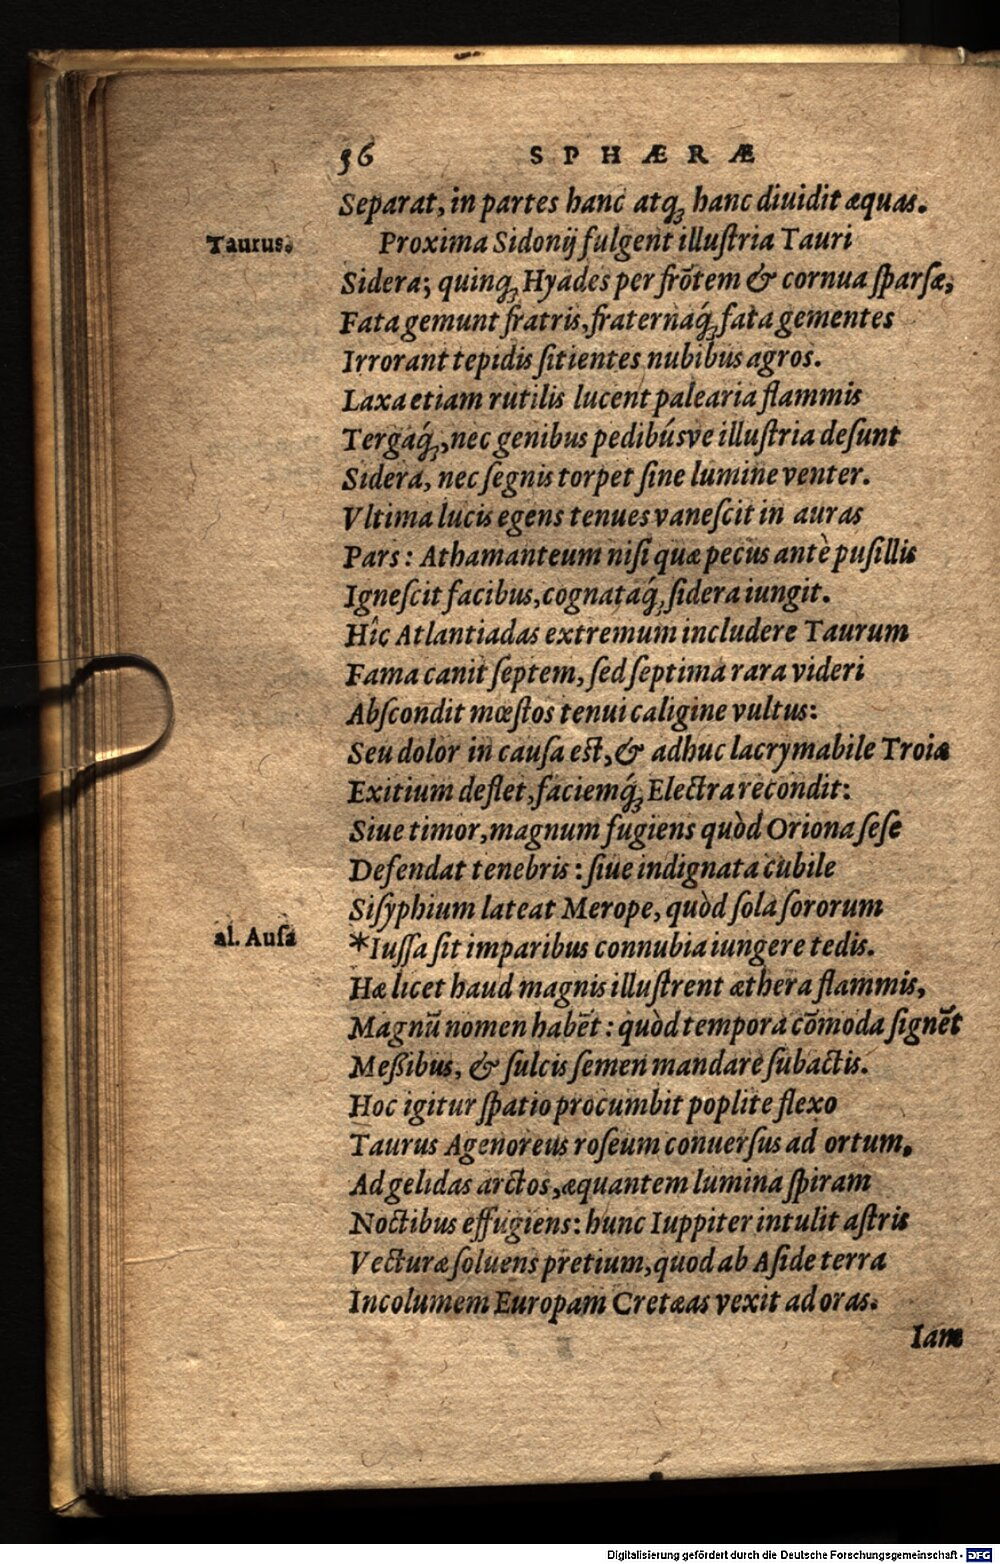 56 SPHÆRÆ
Separat, in partes hanc atq; hanc diuidit æquas.
Taurus.
Proxima Sidonij fulgent illuſtria Tauri
Sidera; quinq; Hyades per frōtem & cornua ſparſæ,
Fata gemunt fratris, fraternáq; fata gementes
Irrorant tepidis ſitientes nubibus agros.
Laxa etiam rutilis lucent palearia flammis
Tergáq;, nec genibus pedibúsve illuſtria deſunt
Sidera, nec ſegnis torpet ſine lumine venter.
Vltima lucis egens tenues vaneſcit in auras
Pars: Athamanteum niſi quæ pecus antè puſillis
Igneſcit facibus, cognatáq; ſidera iungit.
Hîc Atlantiadas extremum includere Taurum
Fama canit ſeptem, ſed ſeptima rara videri
Abſcondit mœſtos tenui caligine vultus:
Seu dolor in cauſa eſt, & adhuc lacrymabile Troiæ
Exitium deflet, faciemq́; Electra recondit:
Siue timor, magnum fugiens quòd Oriona ſeſe
Defendat tenebris: ſiue indignata cubile
Siſyphium lateat Merope, quòd ſola ſororum
al. Auſa
*Iuſſa ſit imparibus connubia iungere tedis.
Hæ licet haud magnis illuſtrent æthera flammis,
Magnū nomen habēt: quòd tempora cōmoda ſignēt
Meſſibus, & ſulcis ſemen mandare ſubactis.
Hoc igitur ſpatio procumbit poplite flexo
Taurus Agenoreus roſeum conuerſus ad ortum,
Ad gelidas arctos, æquantem lumina ſpiram
Noctibus effugiens: hunc Iuppiter intulit aſtris
Vecturæ ſoluens pretium, quod ab Aſide terra
Incolumem Europam Cretæas vexit ad oras.
Iam
Digitalisierung gefördert durch die Deutsche Forschungsgemeinschaft - DFG